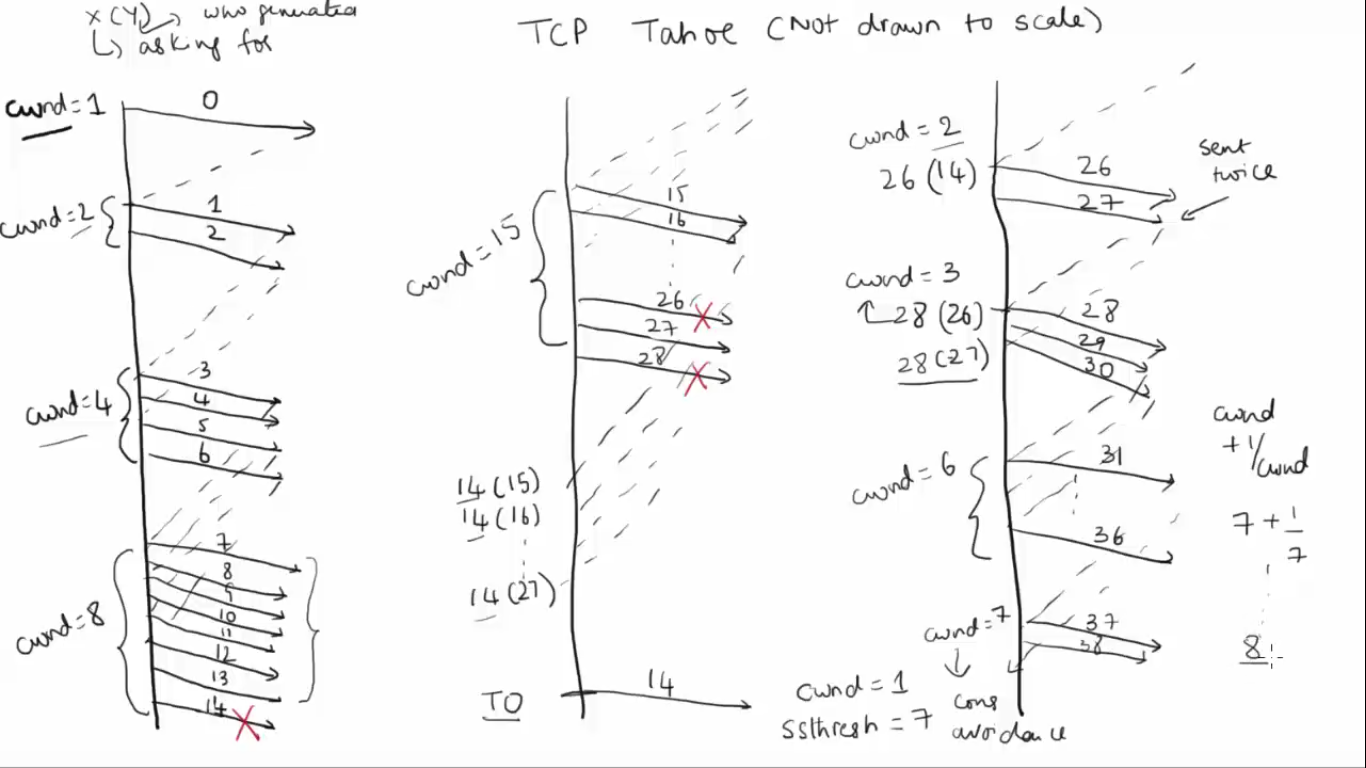 x(y) → who generated
↳ asking for
TCP Tahoe (Not drawn to scale)
cwnd=1
0
cwnd=2
1
2
cwnd=4
3
4
5
6
cwnd=8
7
8
9
10
11
12
13
14
cwnd=15
15
16
26
27
28
14(15)
14(16)
14(27)
TO
14
cwnd=1
ssthresh=7
cwnd=2
26(14)
26
27
sent
twice
cwnd=3
28(26)
28(27)
28
29
30
cwnd=6
31
36
cwnd=7
37
38
cong
avoidance
cwnd
+1/cwnd
7+1/7
8